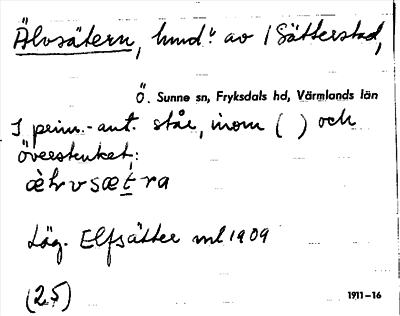 Älvsätern, hmd. av 1 Sätterstad,
Ö. Sunne sn, Fryksdals hd, Värmlands län
I prim.-ant. står, inom ( ) och
överstruket:
Låg. Elfsätter ml 1909
(25)
1911-16